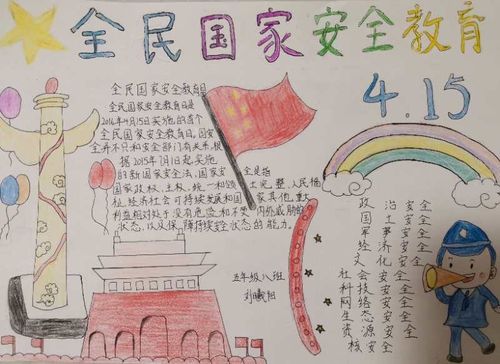 全民国家安全教育
4.15
全民国家安全教育日
全民国家安全教育日是
2016年4月15日实施的首个
全民国家安全教育日，国安
全并不只和安全部门有关系，根
据2015年7月1日起实施
的新国家安全法，国家安全是指
国家政权、主权、统一和领土完整、人民福
祉、经济社会可持续发展和国家其他重大
利益相对处于没有危险和不受内外威胁的
状态，以及保障持续安全状态的能力。
五年级八班
政治安全
国土安全
军事安全
经济安全
文化安全
社会安全
科技安全
网络安全
生态安全
资源安全
核安全